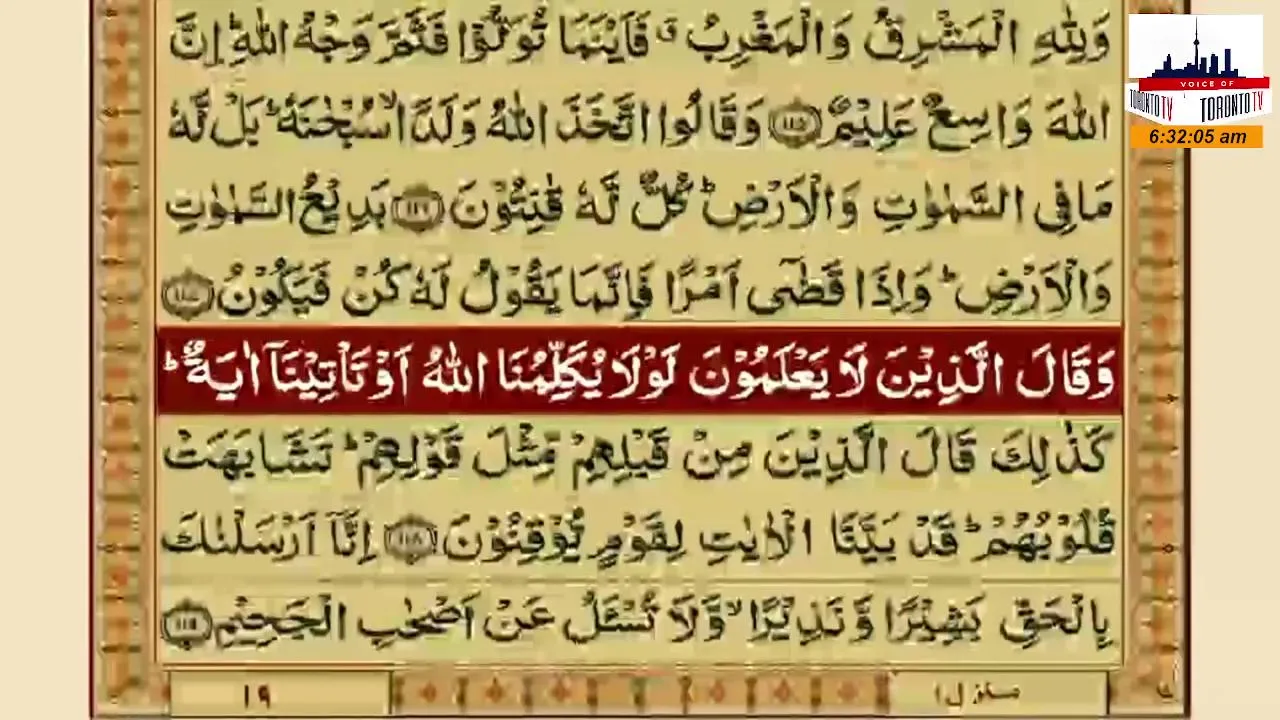 وَلِلّٰهِ الْمَشْرِقُ وَالْمَغْرِبُ ۗ فَاَيْنَمَا تُوَلُّوْا فَثَمَّ وَجْهُ اللّٰهِ ؕ اِنَّ
اللّٰهَ وَاسِعٌ عَلِيْمٌ ﴿۱۱۵﴾ وَقَالُوا اتَّخَذَ اللّٰهُ وَلَدًا ۙ سُبْحٰنَهٗ ؕ بَلْ لَّهٗ
مَا فِى السَّمٰوٰتِ وَالْاَرْضِ ؕ كُلٌّ لَّهٗ قٰنِتُوْنَ ﴿۱۱۶﴾ بَدِيْعُ السَّمٰوٰتِ
وَالْاَرْضِ ؕ وَاِذَا قَضٰٓى اَمْرًا فَاِنَّمَا يَقُوْلُ لَهٗ كُنْ فَيَكُوْنُ ﴿۱۱۷﴾
وَقَالَ الَّذِيْنَ لَا يَعْلَمُوْنَ لَوْلَا يُكَلِّمُنَا اللّٰهُ اَوْ تَاْتِيْنَاۤ اٰيَةٌ ؕ
كَذٰلِكَ قَالَ الَّذِيْنَ مِنْ قَبْلِهِمْ مِّثْلَ قَوْلِهِمْ ؕ تَشَابَهَتْ
قُلُوْبُهُمْ ؕ قَدْ بَيَّنَّا الْاٰيٰتِ لِقَوْمٍ يُّوْقِنُوْنَ ﴿۱۱۸﴾ اِنَّاۤ اَرْسَلْنٰكَ
بِالْحَقِّ بَشِيْرًا وَّنَذِيْرًا ۙ وَّلَا تُسْـَٔلُ عَنْ اَصْحٰبِ الْجَحِيْمِ ﴿۱۱۹﴾
منزل ۱
۱۹
VOICE OF
TORONTO TV TORONTO TV
6:32:05 am